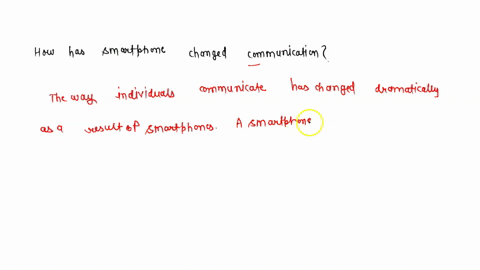 How has smartphone changed communication?
The way individuals communicate has changed dramatically
as a result of smartphones. A smartphone